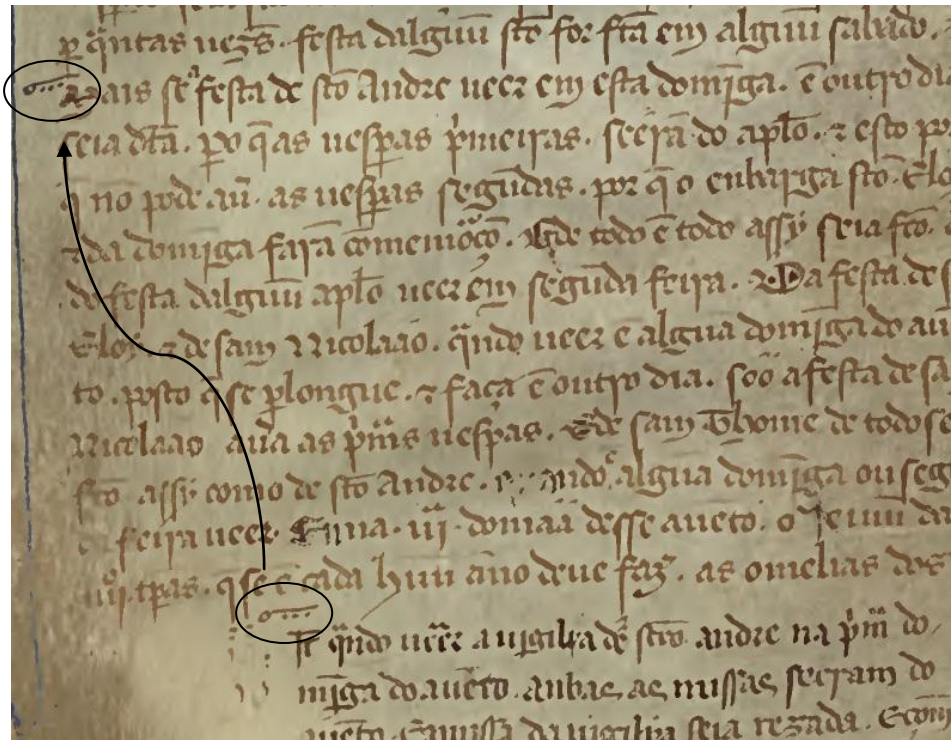 ꝑ qͣntas uezes. festa dalguũ sc̃o for fc̃a em alguũ sabado.
Mais se festa de sc̃o Andre ueer em esta domĩga. ẽ outro dia
seia dc̃a. ꝑo q̃ as uesꝑas pͥmeiras. seerã do apło. ⁊ esto
q̃ nõ pode. auer. as uesꝑas segũdas. por q̃ o enbarga sc̃o. Elo
⁊ da domĩga farã comemoraçõ. E de todo ẽ todo assy seia fc̃o.
do festa dalguũ apło ueer em segũda feira. Da festa de
Eloy ⁊ de sam Nicolaao. qͣndo ueer ẽ algua domĩga do auẽ
to. posto q̃ se ꝓlongue. ⁊ faça ẽ outro dia. soo a festa de sã
Nicolaao auera as pͥmͣs uesꝑas. E de sam Thome de todo se
fc̃o assy como de sc̃o Andre. algua domĩga ou seg
feira ueer. Enna. iii. domaã desse aueto. o jeiuũ
iiii. tẽꝑas. q̃ se ẽ cada huũ ãno deue faz̃. as omelias dos
It̃ qͣndo ueer a uigilia de sc̃o andre na pͥmͣ do
mĩga do auẽto. anbas as missas seeram do
auẽto. E a missa da uigilia seia rezada. E com